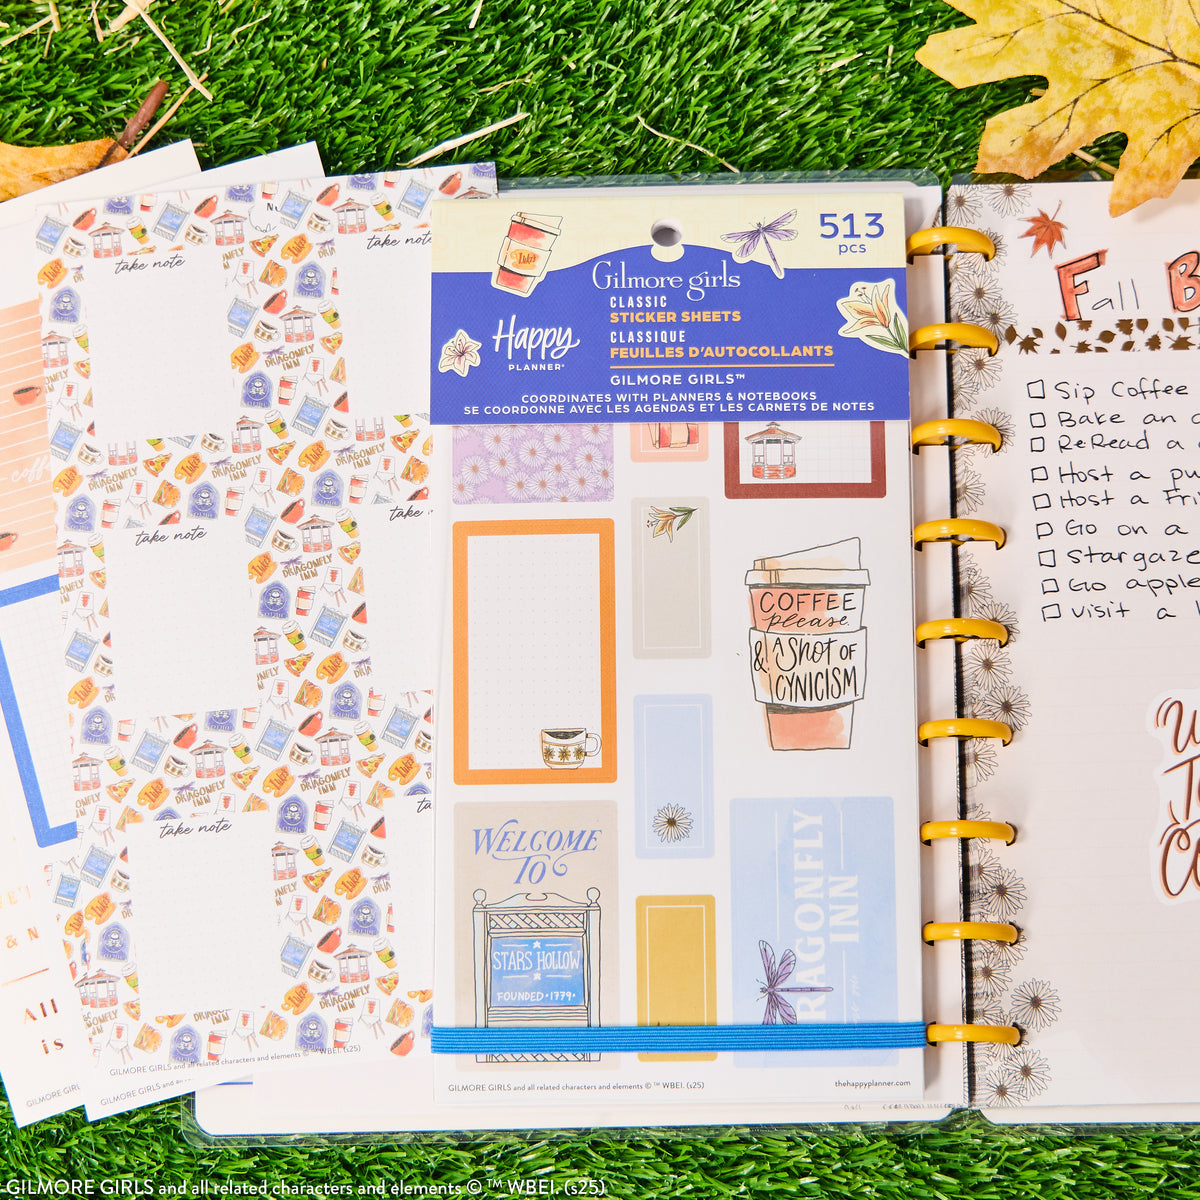 513
pcs
Luke's
Gilmore girls
CLASSIC
STICKER SHEETS
Happy
PLANNER®
CLASSIQUE
FEUILLES D'AUTOCOLLANTS
GILMORE GIRLS™
COORDINATES WITH PLANNERS & NOTEBOOKS
SE COORDONNE AVEC LES AGENDAS ET LES CARNETS DE NOTES
COFFEE
please
& A SHOT OF
CYNICISM
WELCOME
TO
STARS HOLLOW
FOUNDED • 1779 •
DRAGONFLY
INN
GILMORE GIRLS and all related characters and elements © ™ WBEI. (s25)
thehappyplanner.com
take note
take note
take note
take note
DRAGONFLY
INN
Luke's
characters and elements © ™ WBEI. (s25)
All
is
Fall B
Sip Coffee
Bake an
ReRead a
Host a
Host a
Go on a
Stargaze
Go apple
Visit a
GILMORE GIRLS and all related characters and elements © ™ WBEI. (s25)